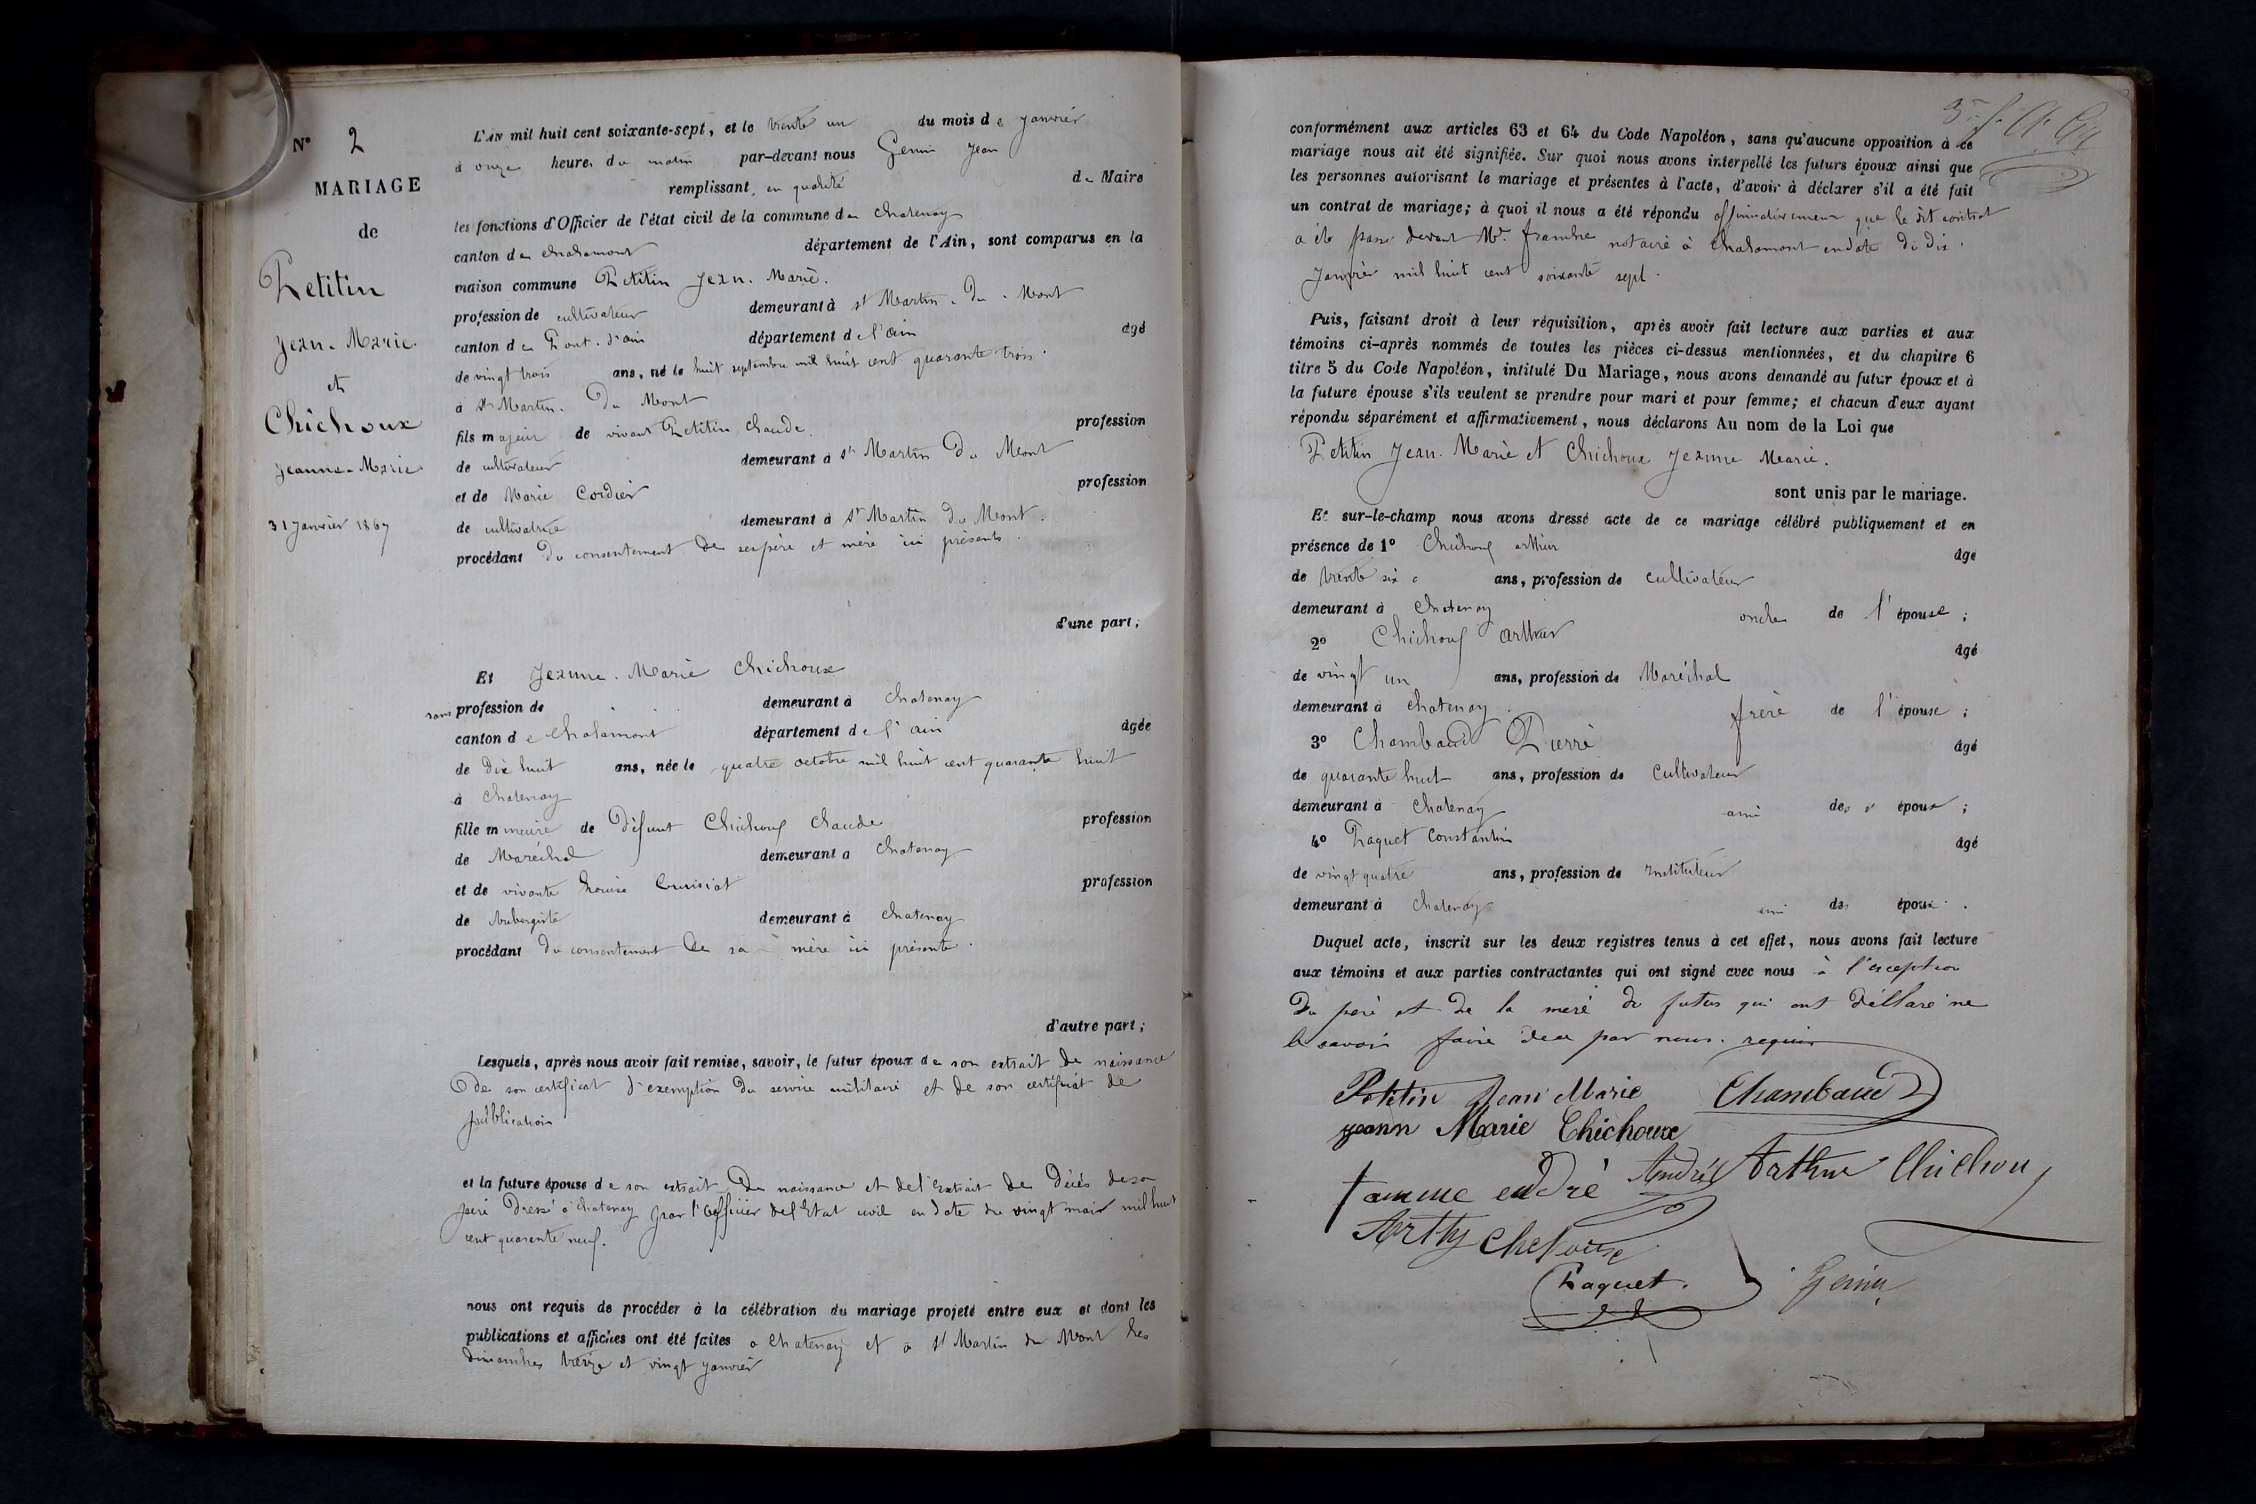 N° 2
MARIAGE
de
Petitin
Jean-Marie
et
Chichoux
Jeanne-Marie
31 janvier 1867
L'AN mil huit cent soixante-sept, et le trente un du mois de janvier
à onze heures du matin par-devant nous Genin Jean
remplissant, en qualité de Maire
les fonctions d'Officier de l'état civil de la commune de Chatenay
canton de Chalamont département de l'Ain, sont comparus en la
maison commune Petitin Jean-Marie.
profession de cultivateur demeurant à St Martin-du-Mont
canton de Pont-d'ain département de l'ain âgé
de vingt trois ans, né le huit septembre mil huit cent quarante trois.
à St Martin-du Mont
fils majeur de vivant Petitin Claude profession
de cultivateur demeurant à St Martin du Mont
et de Marie Cordier profession
de cultivatrice demeurant à St Martin du Mont.
procédant du consentement de ses père et mère ici présents.
d'une part;
Et Jeanne-Marie Chichoux
sans profession de demeurant à Chatenay
canton de Chalamont département de l'ain âgée
de dix huit ans, née le quatre octobre mil huit cent quarante huit
à Chatenay
fille mineure de défunt Chichoux Claude profession
de Maréchal demeurant à Chatenay
et de vivante Louise Cruisiat profession
de Aubergiste demeurant à Chatenay
procédant du consentement de sa mère ici présente.
d'autre part;
Lesquels, après nous avoir fait remise, savoir, le futur époux de son extrait de naissance
de son certificat d'exemption du service militaire et de son certificat de
publication
et la future épouse de son extrait de naissance et de l'extrait de décès de son
père dressé à Chatenay par l'officier de l'Etat civil en date du vingt mars mil huit
cent quarante neuf.
nous ont requis de procéder à la célébration du mariage projeté entre eux et dont les
publications et affiches ont été faites à Chatenay et à St Martin du Mont les
dimanches treize et vingt janvier
conformément aux articles 63 et 64 du Code Napoléon, sans qu'aucune opposition à ce
mariage nous ait été signifiée. Sur quoi nous avons interpellé les futurs époux ainsi que
les personnes autorisant le mariage et présentes à l'acte, d'avoir à déclarer s'il a été fait
un contrat de mariage; à quoi il nous a été répondu affirmativement que le dit contrat
a été passé devant Me notaire à Chalamont en date du dix
janvier mil huit cent soixante sept.
Puis, faisant droit à leur réquisition, après avoir fait lecture aux parties et aux
témoins ci-après nommés de toutes les pièces ci-dessus mentionnées, et du chapitre 6
titre 5 du Code Napoléon, intitulé Du Mariage, nous avons demandé au futur époux et à
la future épouse s'ils veulent se prendre pour mari et pour femme; et chacun d'eux ayant
répondu séparément et affirmativement, nous déclarons Au nom de la Loi que
Petitin Jean-Marie et Chichoux Jeanne Marie.
sont unis par le mariage.
Et sur-le-champ nous avons dressé acte de ce mariage célébré publiquement et en
présence de 1° Chichoux arthur âgé
de trente six ans, profession de cultivateur
demeurant à Chatenay oncle de l'épouse;
2° Chichoux arthur âgé
de vingt un ans, profession de Maréchal
demeurant à Chatenay frère de l'épouse;
3° Chambaud Pierre âgé
de quarante huit ans, profession de cultivateur
demeurant à Chatenay ami des époux;
4° Paquet Constantin âgé
de vingt quatre ans, profession de Instituteur
demeurant à Chatenay ami des époux.
Duquel acte, inscrit sur les deux registres tenus à cet effet, nous avons fait lecture
aux témoins et aux parties contractantes qui ont signé avec nous à l'exception
du père et de la mère du futur qui ont déclaré ne
le savoir faire de ce par nous requis
Petitin Jean Marie Chambaud
jeann Marie Chichoux
André Arthur Chichoux
Paquet. Genin